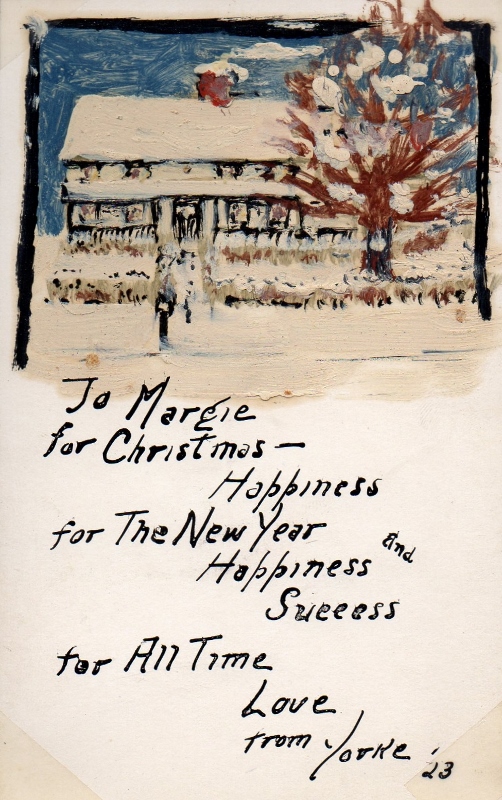 To Margie
for Christmas —
Happiness
for The New Year
Happiness and
Success
for All Time
Love
from Yorke '23